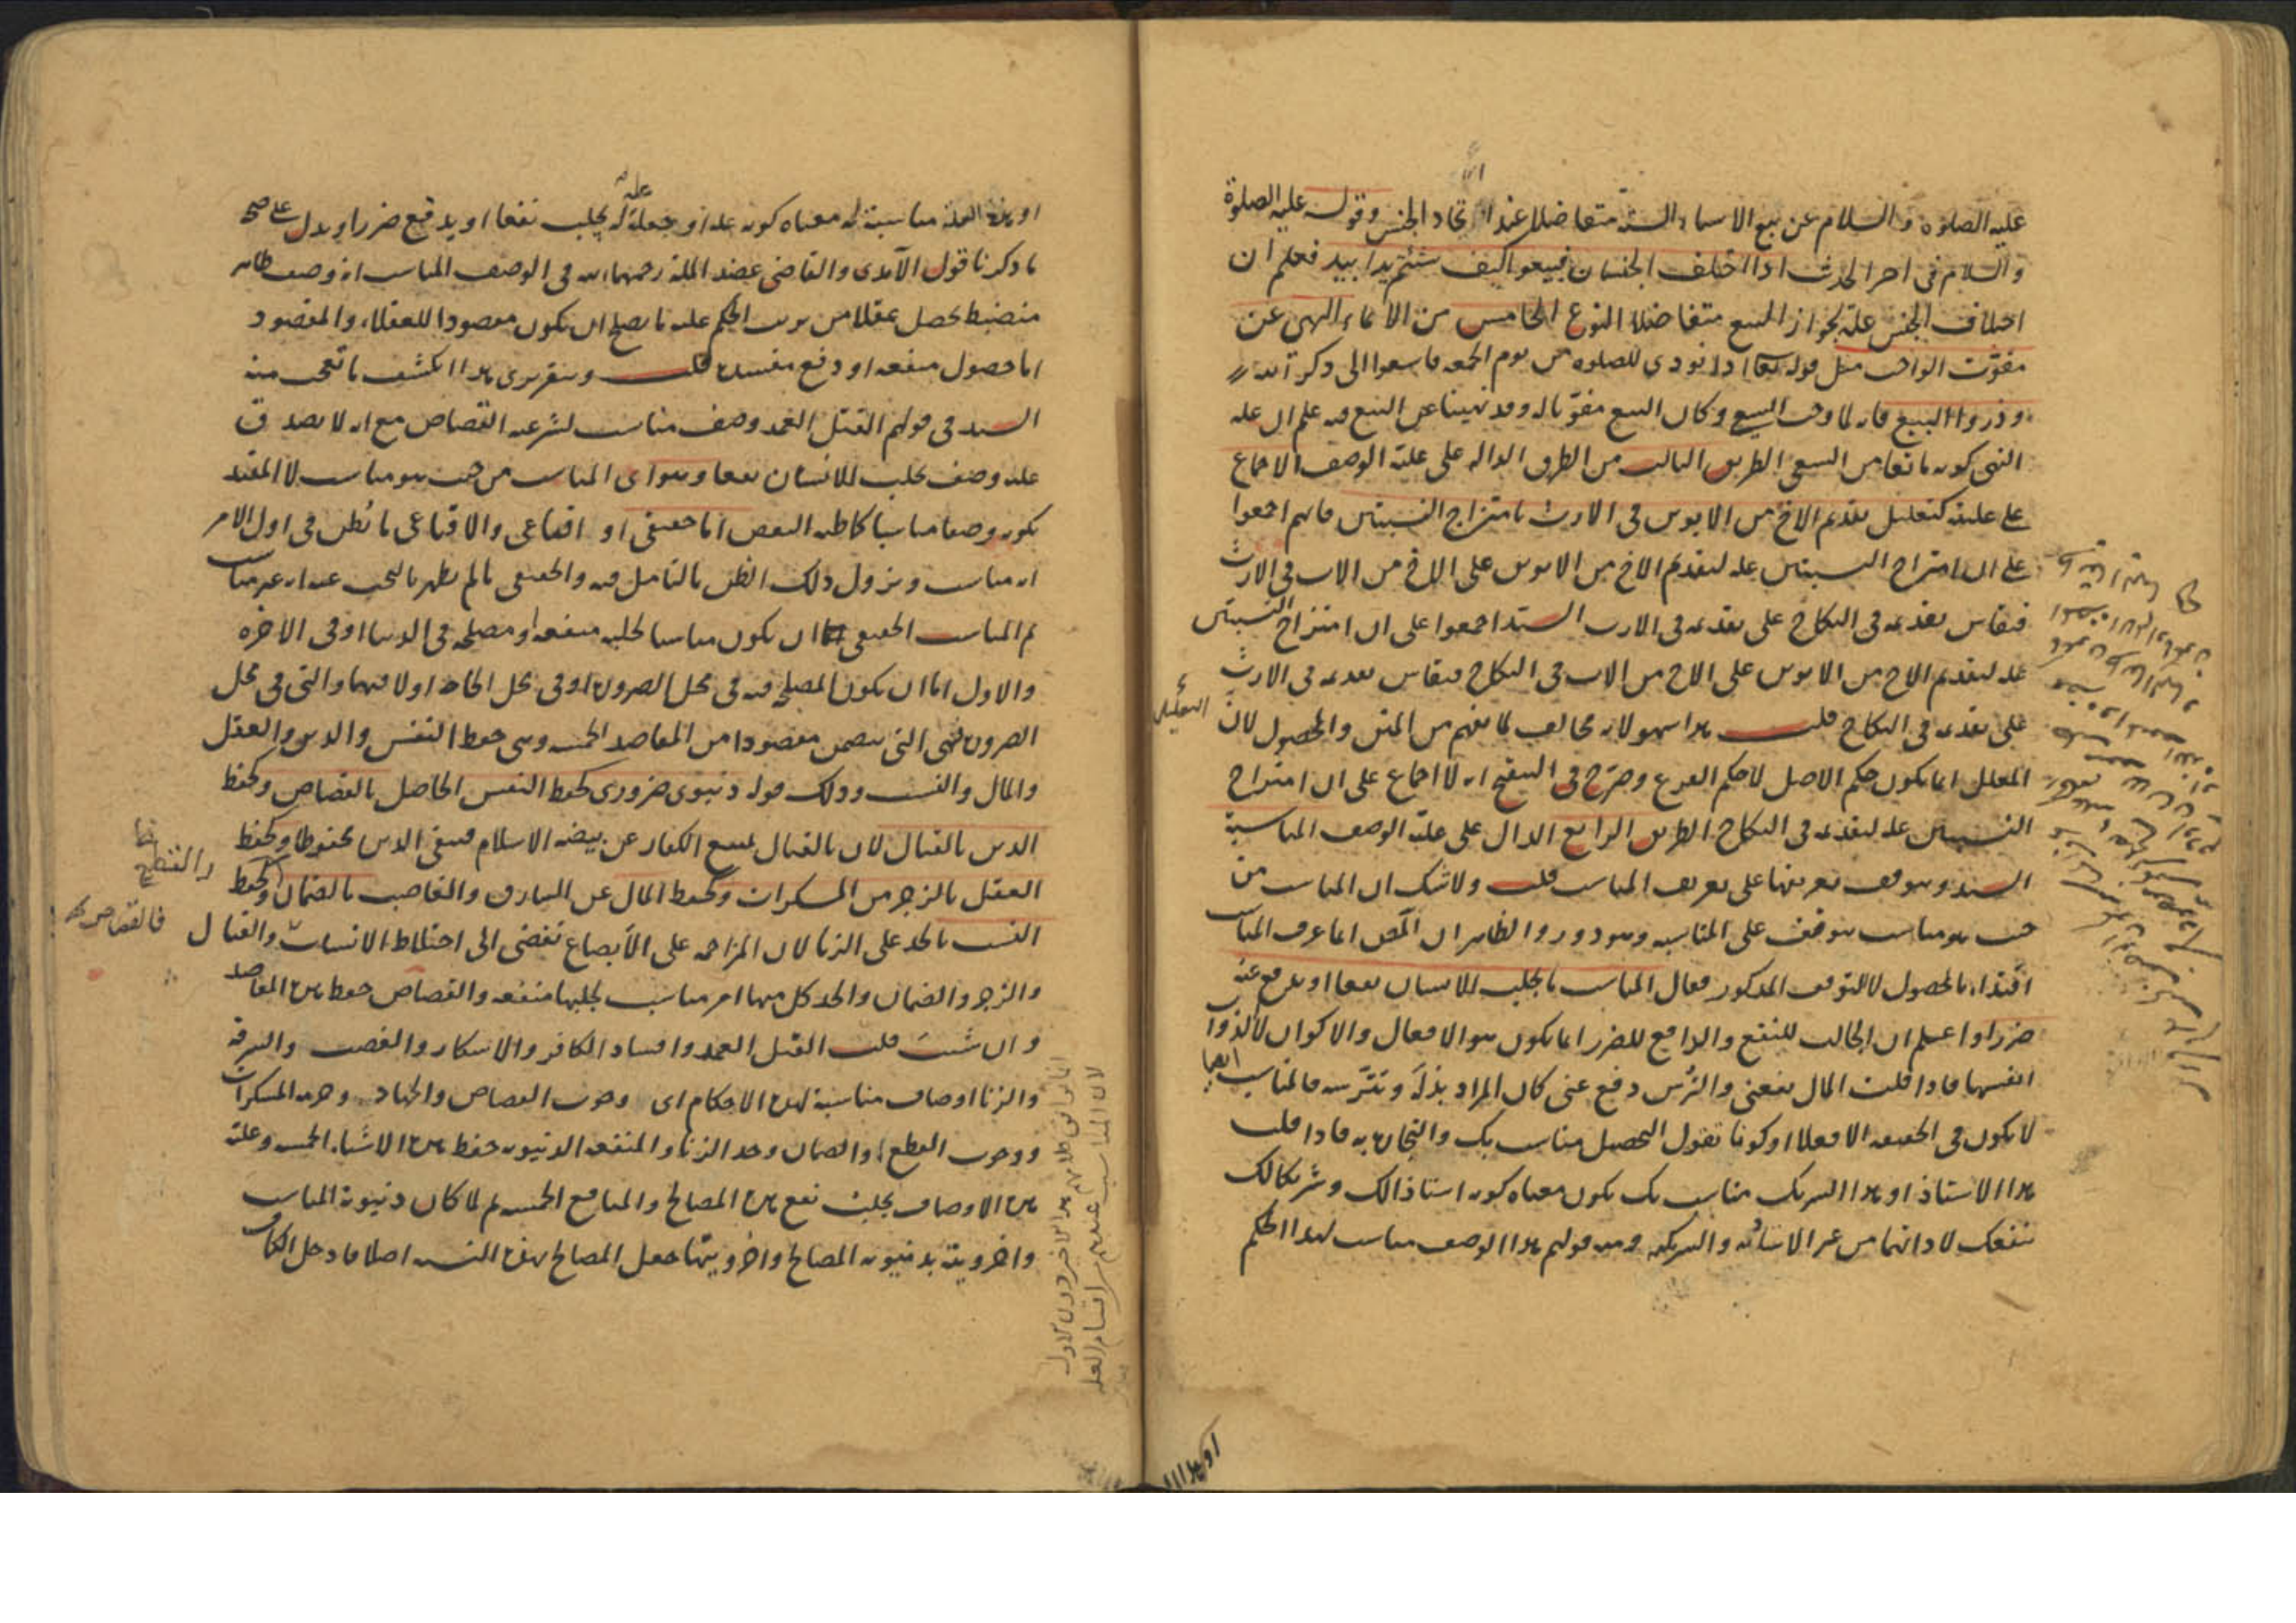 عليه الصلوة والسلام عن بيع الاشياء الستة متفاضلا عند اتحاد الجنس وقوله عليه الصلوة
والسلام في اخر الحديث اذا اختلف الجنسان فبيعوا كيف شئتم يدا بيد فعلم ان
اختلاف الجنس علة لجواز البيع متفاضلا النوع الخامس من الايماء النهى عن
مفوّت الواجب مثل قوله تعالى اذا نودي للصلوة من يوم الجمعة فاسعوا الى ذكر الله
وذروا البيع فانه لما وجب السعي وكان البيع مفوّتا له وقد نهينا عن البيع فيه علم ان علة
النهى كونه مانعا من السعى الطريق الثالث من الطرق الدالة على علية الوصف الاجماع
على عليته كتعليل تقديم الاخ من الابوين في الارث بامتزاج النسبتين فانهم اجمعوا
على ان امتزاج النسبتين علة لتقديم الاخ من الابوين على الاخ من الاب في الارث
فيقاس تقديمه في النكاح على تقديمه في الارث السيد اجمعوا على ان امتزاج النسبتين
علة لتقديم الاخ من الابوين على الاخ من الاب في النكاح فيقاس تقديمه في الارث
على تقديمه في النكاح قلت هذا سهو لانه مخالف لما يفهم من المتن والمحصول لان
المعلل انما يكون حكم الاصل لا حكم الفرع وصرّح في التنقيح انه لا اجماع على ان امتزاج
النسبتين علة لتقديمه في النكاح الطريق الرابع الدال على علية الوصف المناسبة
السيد وتتوقف تعريفها على تعريف المناسب قلت ولا شك ان المناسب من
حيث هو مناسب يتوقف على المناسبة وهو دور والظاهر ان المص انما عرف المناسب
اقتداء بالمحصول لا للتوقف المذكور فقال المناسب ما يجلب للانسان نفعا او يدفع عنه
ضررا واعلم ان الجالب للنفع والدافع للضرر انما يكون هو الافعال والاكوان لا الذوات
انفسها فاذا قلت المال نفعني والترس دفع عني كان المراد بذله وتترسه فالمناسب ايضا
لا يكون في الحقيقة الا فعلا او كونا تقول التحصيل مناسب بك والتجارة به فاذا قلت
هذا الاستاذ او هذا الشريك مناسب بك يكون معناه كونه استاذا لك وشريكا لك
ينفعك لا ذاتهما من غير الاستاذية والشركة ومنه قولهم هذا الوصف مناسب لهذا الحكم
التعليل
او هذه العلة مناسبة له معناه كونه علة او جعله علة له يجلب نفعا او يدفع ضررا ويدل على صحة
ما ذكرنا قول الآمدي والقاضى عضد الملة رحمهما الله في الوصف المناسب انه وصف ظاهر
منضبط يحصل عقلا من ترتب الحكم عليه ما يصلح ان يكون مقصودا للعقلاء والمقصود
اما حصول منفعة او دفع مفسدة قلت وبتقريرى هذا انكشف ما تعجب منه
السيد في قولهم القتل العمد وصف مناسب لشرعية القصاص مع انه لا يصدق
عليه وصف يجلب للانسان نفعا وهو اى المناسب من حيث هو مناسب لا المقيد
بكونه وصفا مناسبا كما ظنه البعض اما حقيقى او اقناعى والاقناعى ما يظن في اول الامر
انه مناسب ويزول ذلك الظن بالتامل فيه والحقيقى ما لم يظهر بالبحث عنه انه غير مناسب
ثم المناسب الحقيقى اما ان يكون مناسبا لجلبه منفعة او مصلحة في الدنيا او في الاخرة
والاول اما ان يكون المصلحة فيه في محل الضرورة او في محل الحاجة او لا فيهما والتى في محل
الضرورة فهى التى يتضمن مقصودا من المقاصد الخمسة وهى حفظ النفس والدين والعقل
والمال والنسب وذلك قوله دنيوى ضرورى كحفظ النفس الحاصل بالقصاص وكحفظ
الدين بالقتال لان بالقتال يمتنع الكفار عن بيضة الاسلام فيبقى الدين محفوظا وكحفظ
العقل بالزجر من المسكرات وكحفظ المال عن السارق والغاصب بالضمان وكحفظ
النسب بالحد على الزنا لان المزاحمة على الابضاع تفضى الى اختلاط الانساب والقتال
والزجر والضمان والحد كل منها امر مناسب لجلبها منفعة والقصاص حفظ هذه المقاصد
وان شئت قلت القتل العمد وافساد الكافر والاسكار والغصب والسرقة
والزنا اوصاف مناسبة لهذه الاحكام اى وجوب القصاص والجهاد وحرمة المسكرات
ووجوب القطع والضمان وحد الزنا والمنفعة الدنيوية حفظ هذه الاشياء الخمسة وعلية
هذه الاوصاف يجلب نفع هذه المصالح والمنافع الخمسة ثم لما كان دنيوية المناسب
واخرويته بدنيوية المصالح واخرويتها جعل المصالح بهذه النسبة اصلا فادخل الكاف
والقطع
فالقصاص
لان المناسب عندهم من اقسام العلة